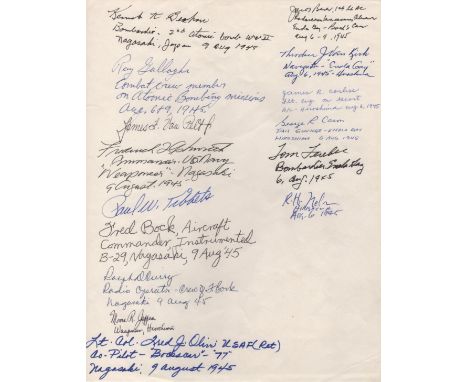 Kermit K Beahan
Bombardier
2nd Atomic bomb WW II
Nagasaki, Japan 9 Aug 1945
Ray Gallagher
Combat Crew member
on Atomic Bombing missions
Aug. 6&9, 1945
James F. Van Pelt Jr
Frederick L Ashworth
Commander US Navy
Weaponeer Nagasaki
9 August 1945
Paul W. Tibbets
Fred Bock, Aircraft
Commander, Instrumented
B-29, Nagasaki, 9 Aug '45
Ralph D Curry
Radio Operator - Crew of F Bock
Nagasaki 9 aug 45
Morris R. Jeppson
Weaponeer, Hiroshima
Lt. Col. Fred J. Olivi USAF (Ret)
Co-Pilot - "Bockscar" - "77"
Nagasaki, 9 August 1945
Jacob Beser, 1st Lt. AC
Aug 6-9, 1945
Theodore J Van Kirk
Navigator - "Enola Gay"
Aug 6, 1945 - Hiroshima
George R. Caron
Tail Gunner - Enola Gay
Hiroshima 6 Aug 1945
Tom Ferebee
Bombardier Enola Gay
6, Aug. 1945
R. H. Nelson
Aug. 6 1945